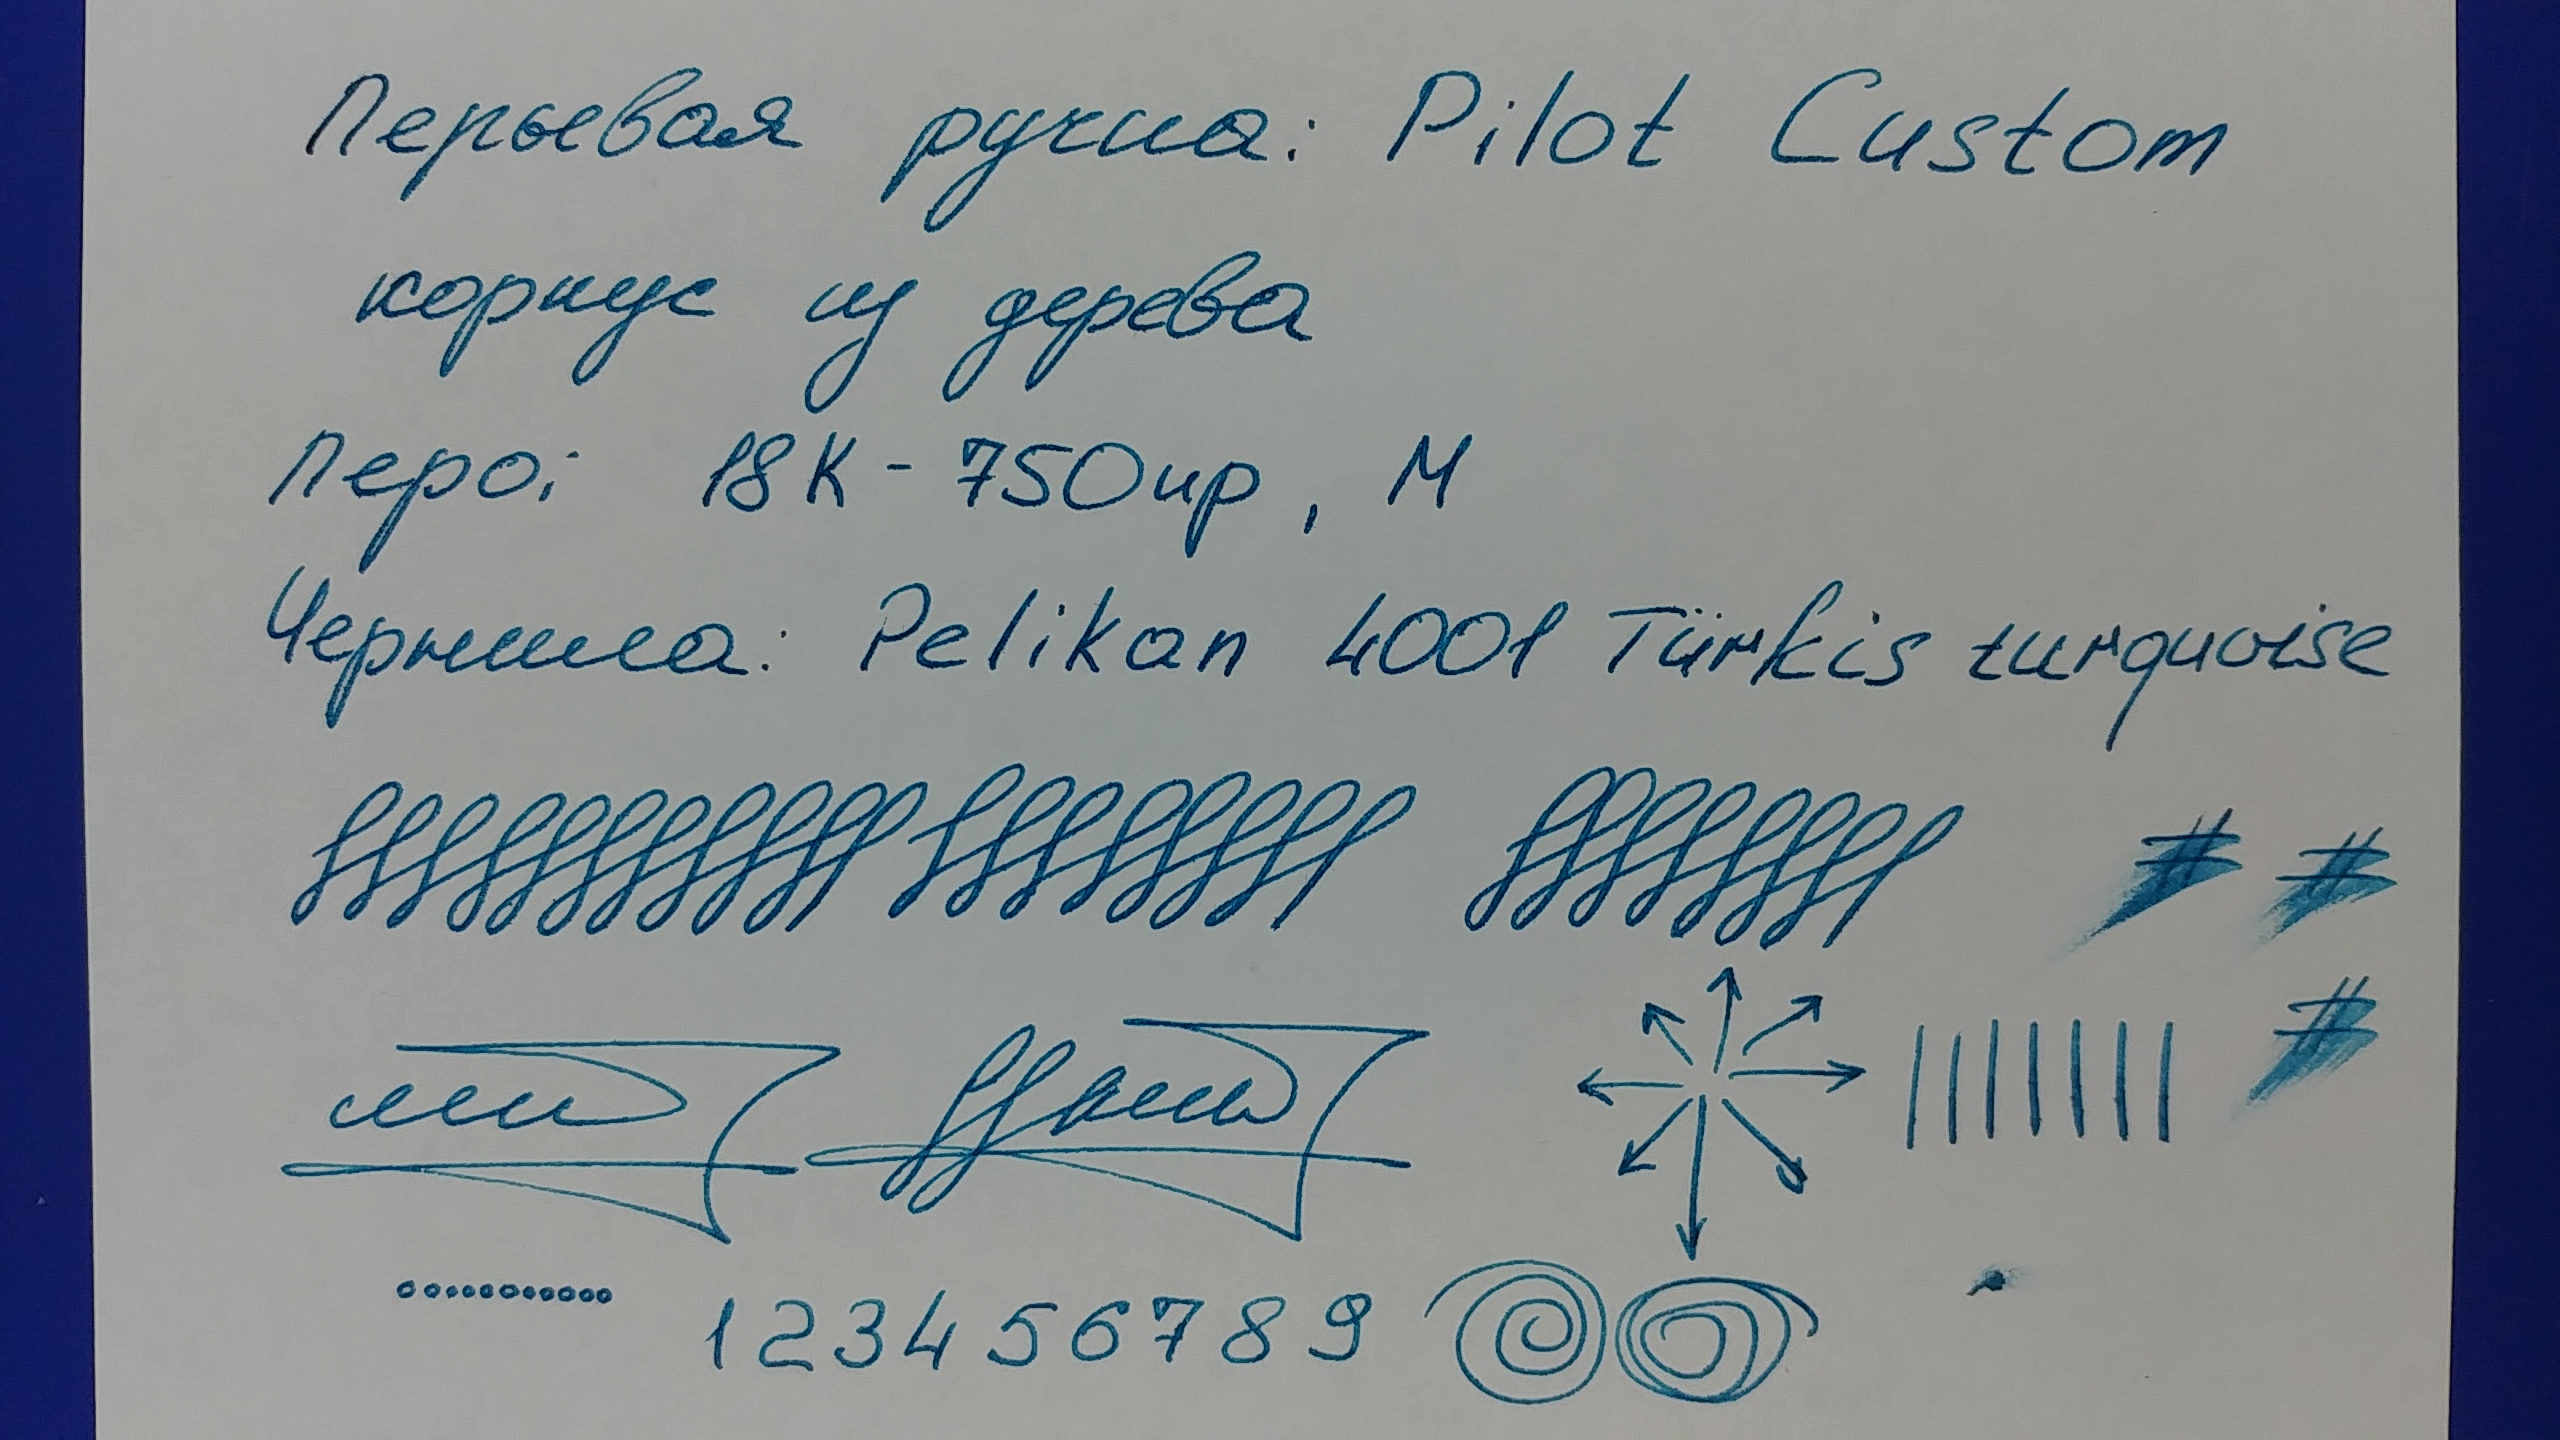 Перьевая ручка: Pilot Custom
корпус из дерева
Перо: 18К-750пр, М
Чернила: Pelikan 4001 Türkis turquoise
1 2 3 4 5 6 7 8 9